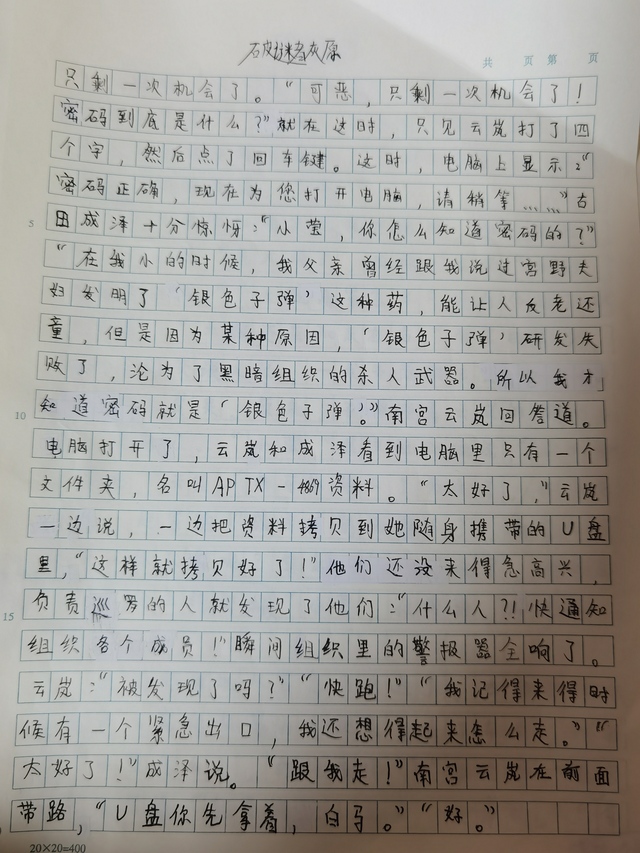 破谜者灰原
共 页 第 页
只剩一次机会了。“可恶，只剩一次机会了！
密码到底是什么？”就在这时，只见云岚打了四
个字，然后点了回车键。这时，电脑上显示：“
密码正确，现在为您打开电脑，请稍等……”古
5 田成泽十分惊讶：“小莹，你怎么知道密码的？”
“在我小的时候，我父亲曾经跟我说过宫野夫
妇发明了‘银色子弹’这种药，能让人反老还
童，但是因为某种原因，‘银色子弹’研发失
败了，沦为了黑暗组织的杀人武器。所以我才
10 知道密码就是‘银色子弹’。”南宫云岚回答道。
电脑打开了，云岚和成泽看到电脑里只有一个
文件夹，名叫APTX-4869资料。“太好了，”云岚
一边说，一边把资料拷贝到她随身携带的U盘
里，“这样就拷贝好了！”他们还没来得急高兴，
15 负责巡罗的人就发现了他们：“什么人？！快通知
组织各个成员！”瞬间组织里的警报器全响了。
云岚：“被发现了吗？”“快跑！”“我记得来得时
候有一个紧急出口，我还想得起来怎么走。”“
太好了！”成泽说。“跟我走！”南宫云岚在前面
带路，“U盘你先拿着，白马。”“好。”
20×20=400